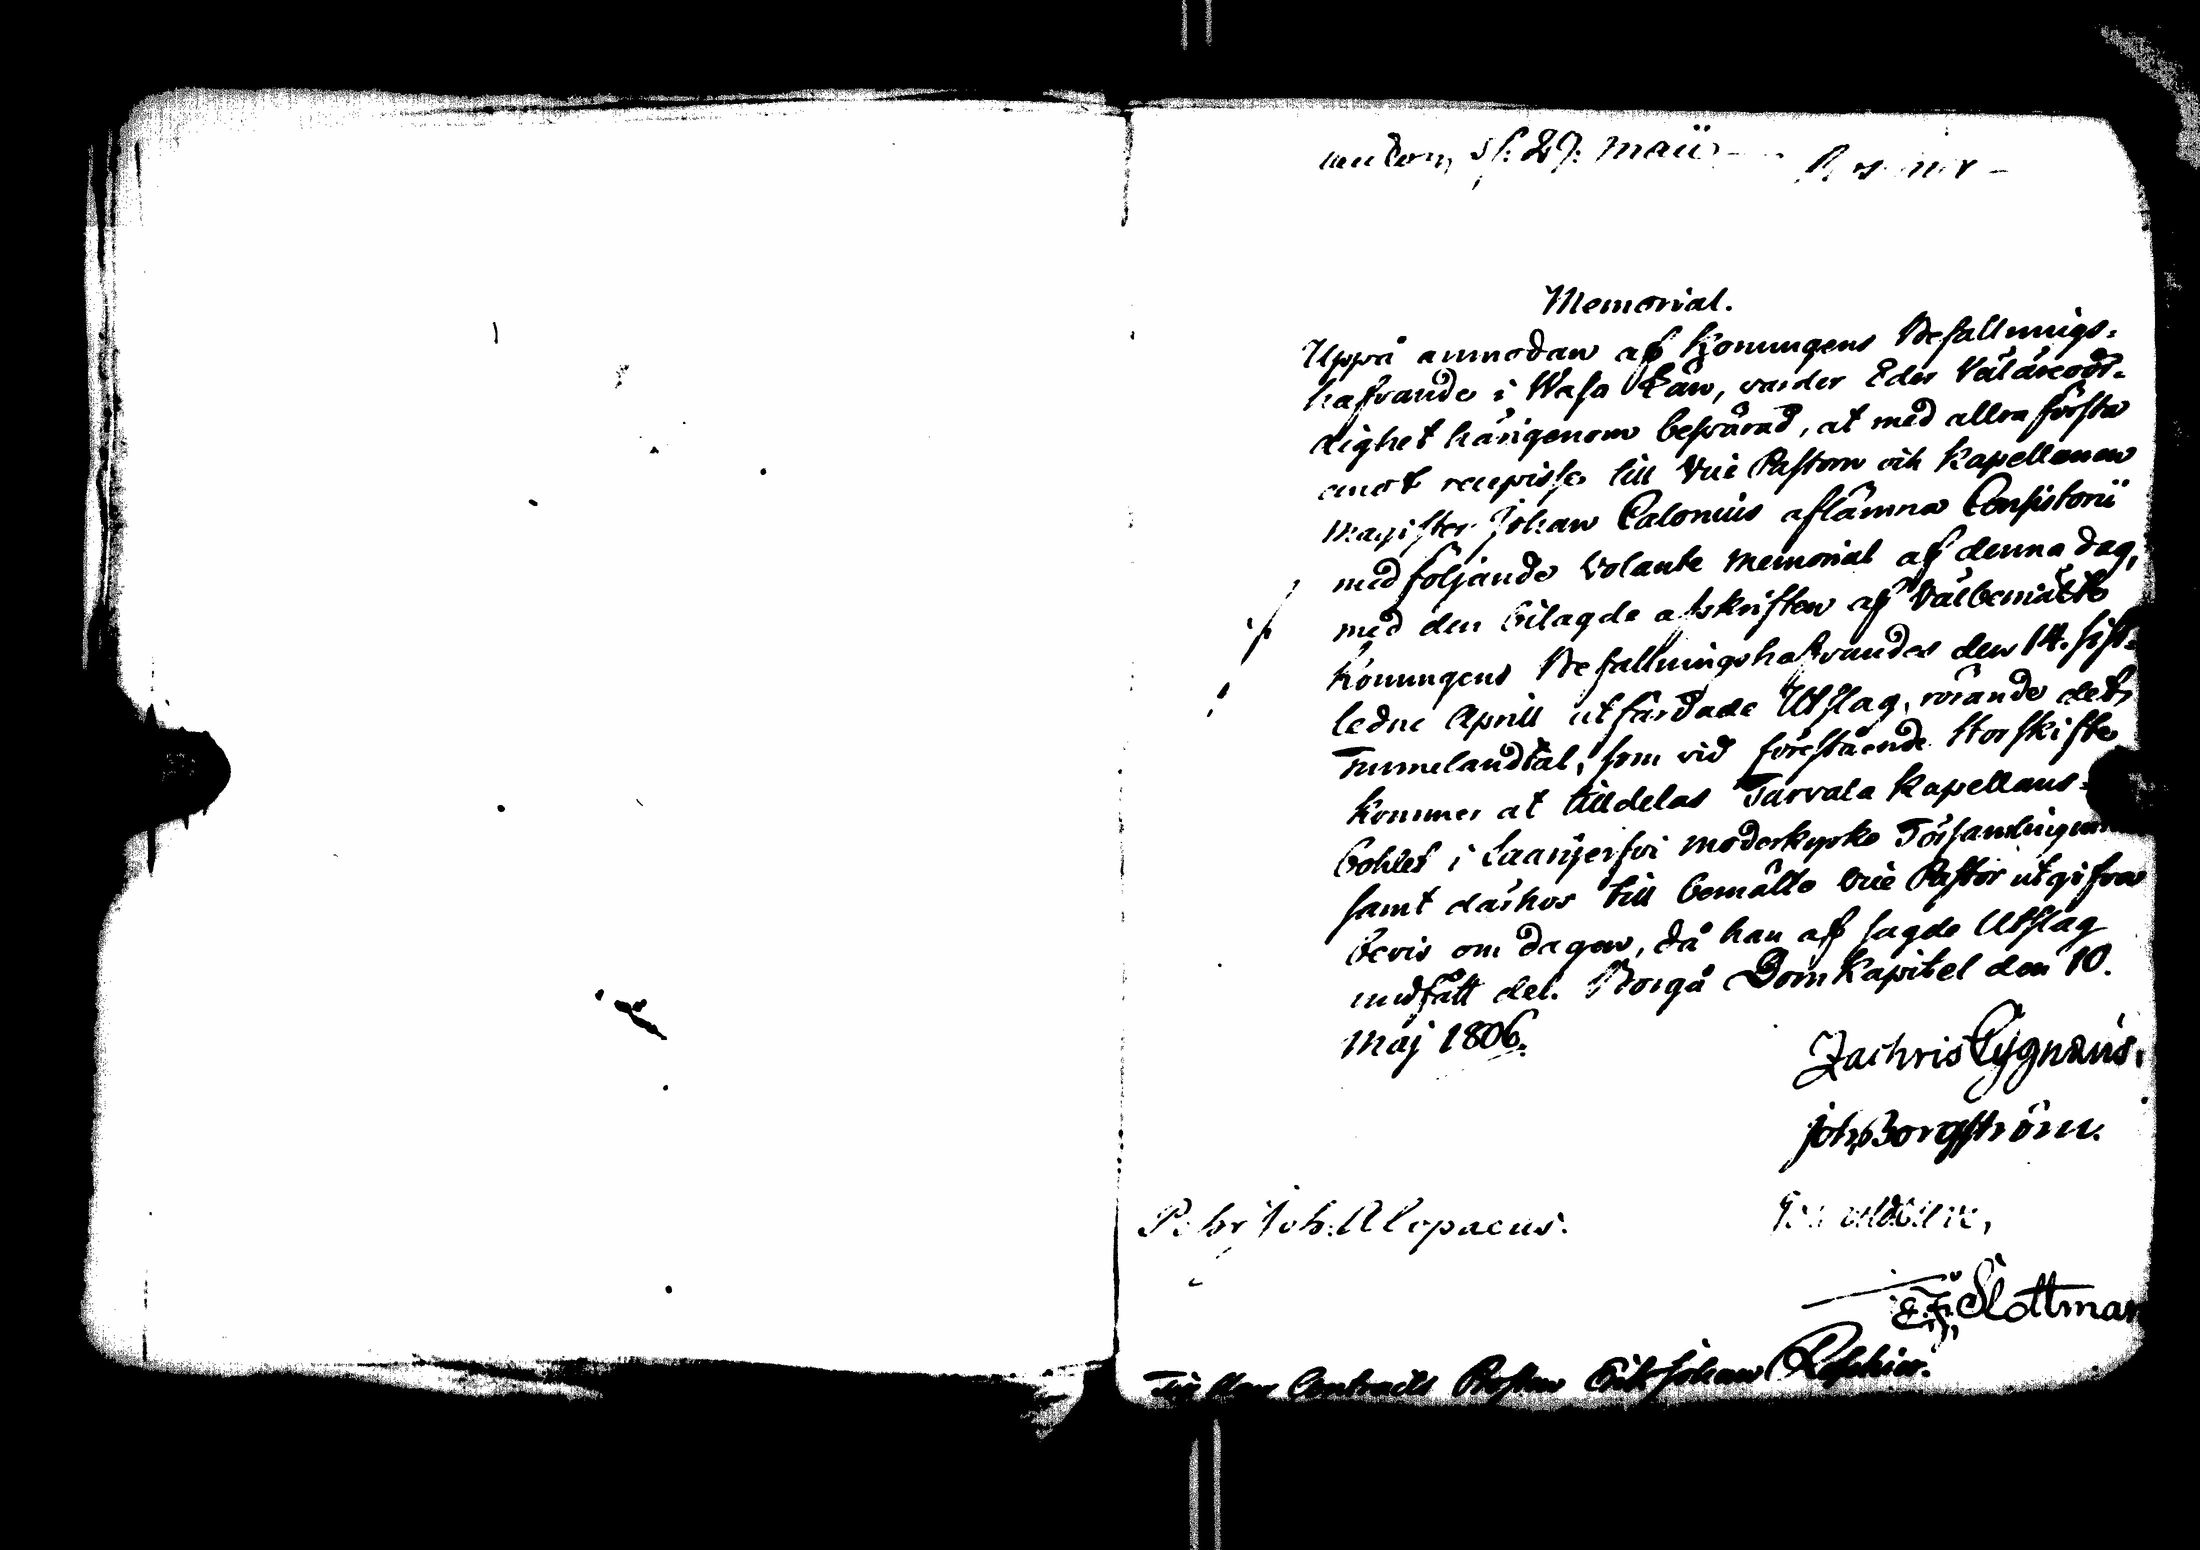 d. 27. Maii
Memorial.
Uppå anmodan af Konungens Befallnings-
hafvande i Wasa Län, varder Eder Välärevör-
dighet härigenom besvärad, at med allra första
emot recepisse till Vice Pastorn och Kapellanen
Magister Johan Calonius aflämna Consistorii
medföljande volante Memorial af denna dag,
med den bilagde afskriften af Välbemälte
Konungens Befallningshafvandes den 14. sist-
ledne Aprill utfärdade Utslag, rörande det
Tunnelandtal, som vid förestående Storskifte
kommer at tilldelas Tarvala Kapellans-
bohlet i Laanjerfvi moderkyrko Församlingen
samt därhos till bemälte Vice Pastor utgifva
bevis om dagen, då han af sagde Utslag
undfått del. Borgå DomKapitel den 10.
Maj 1806.
Zachris Cygnæus.
Joh. Borgström.
Pehr Joh. Alopaeus.
E. F. Slottman
Till Herr Contracts Prosten Erik Johan